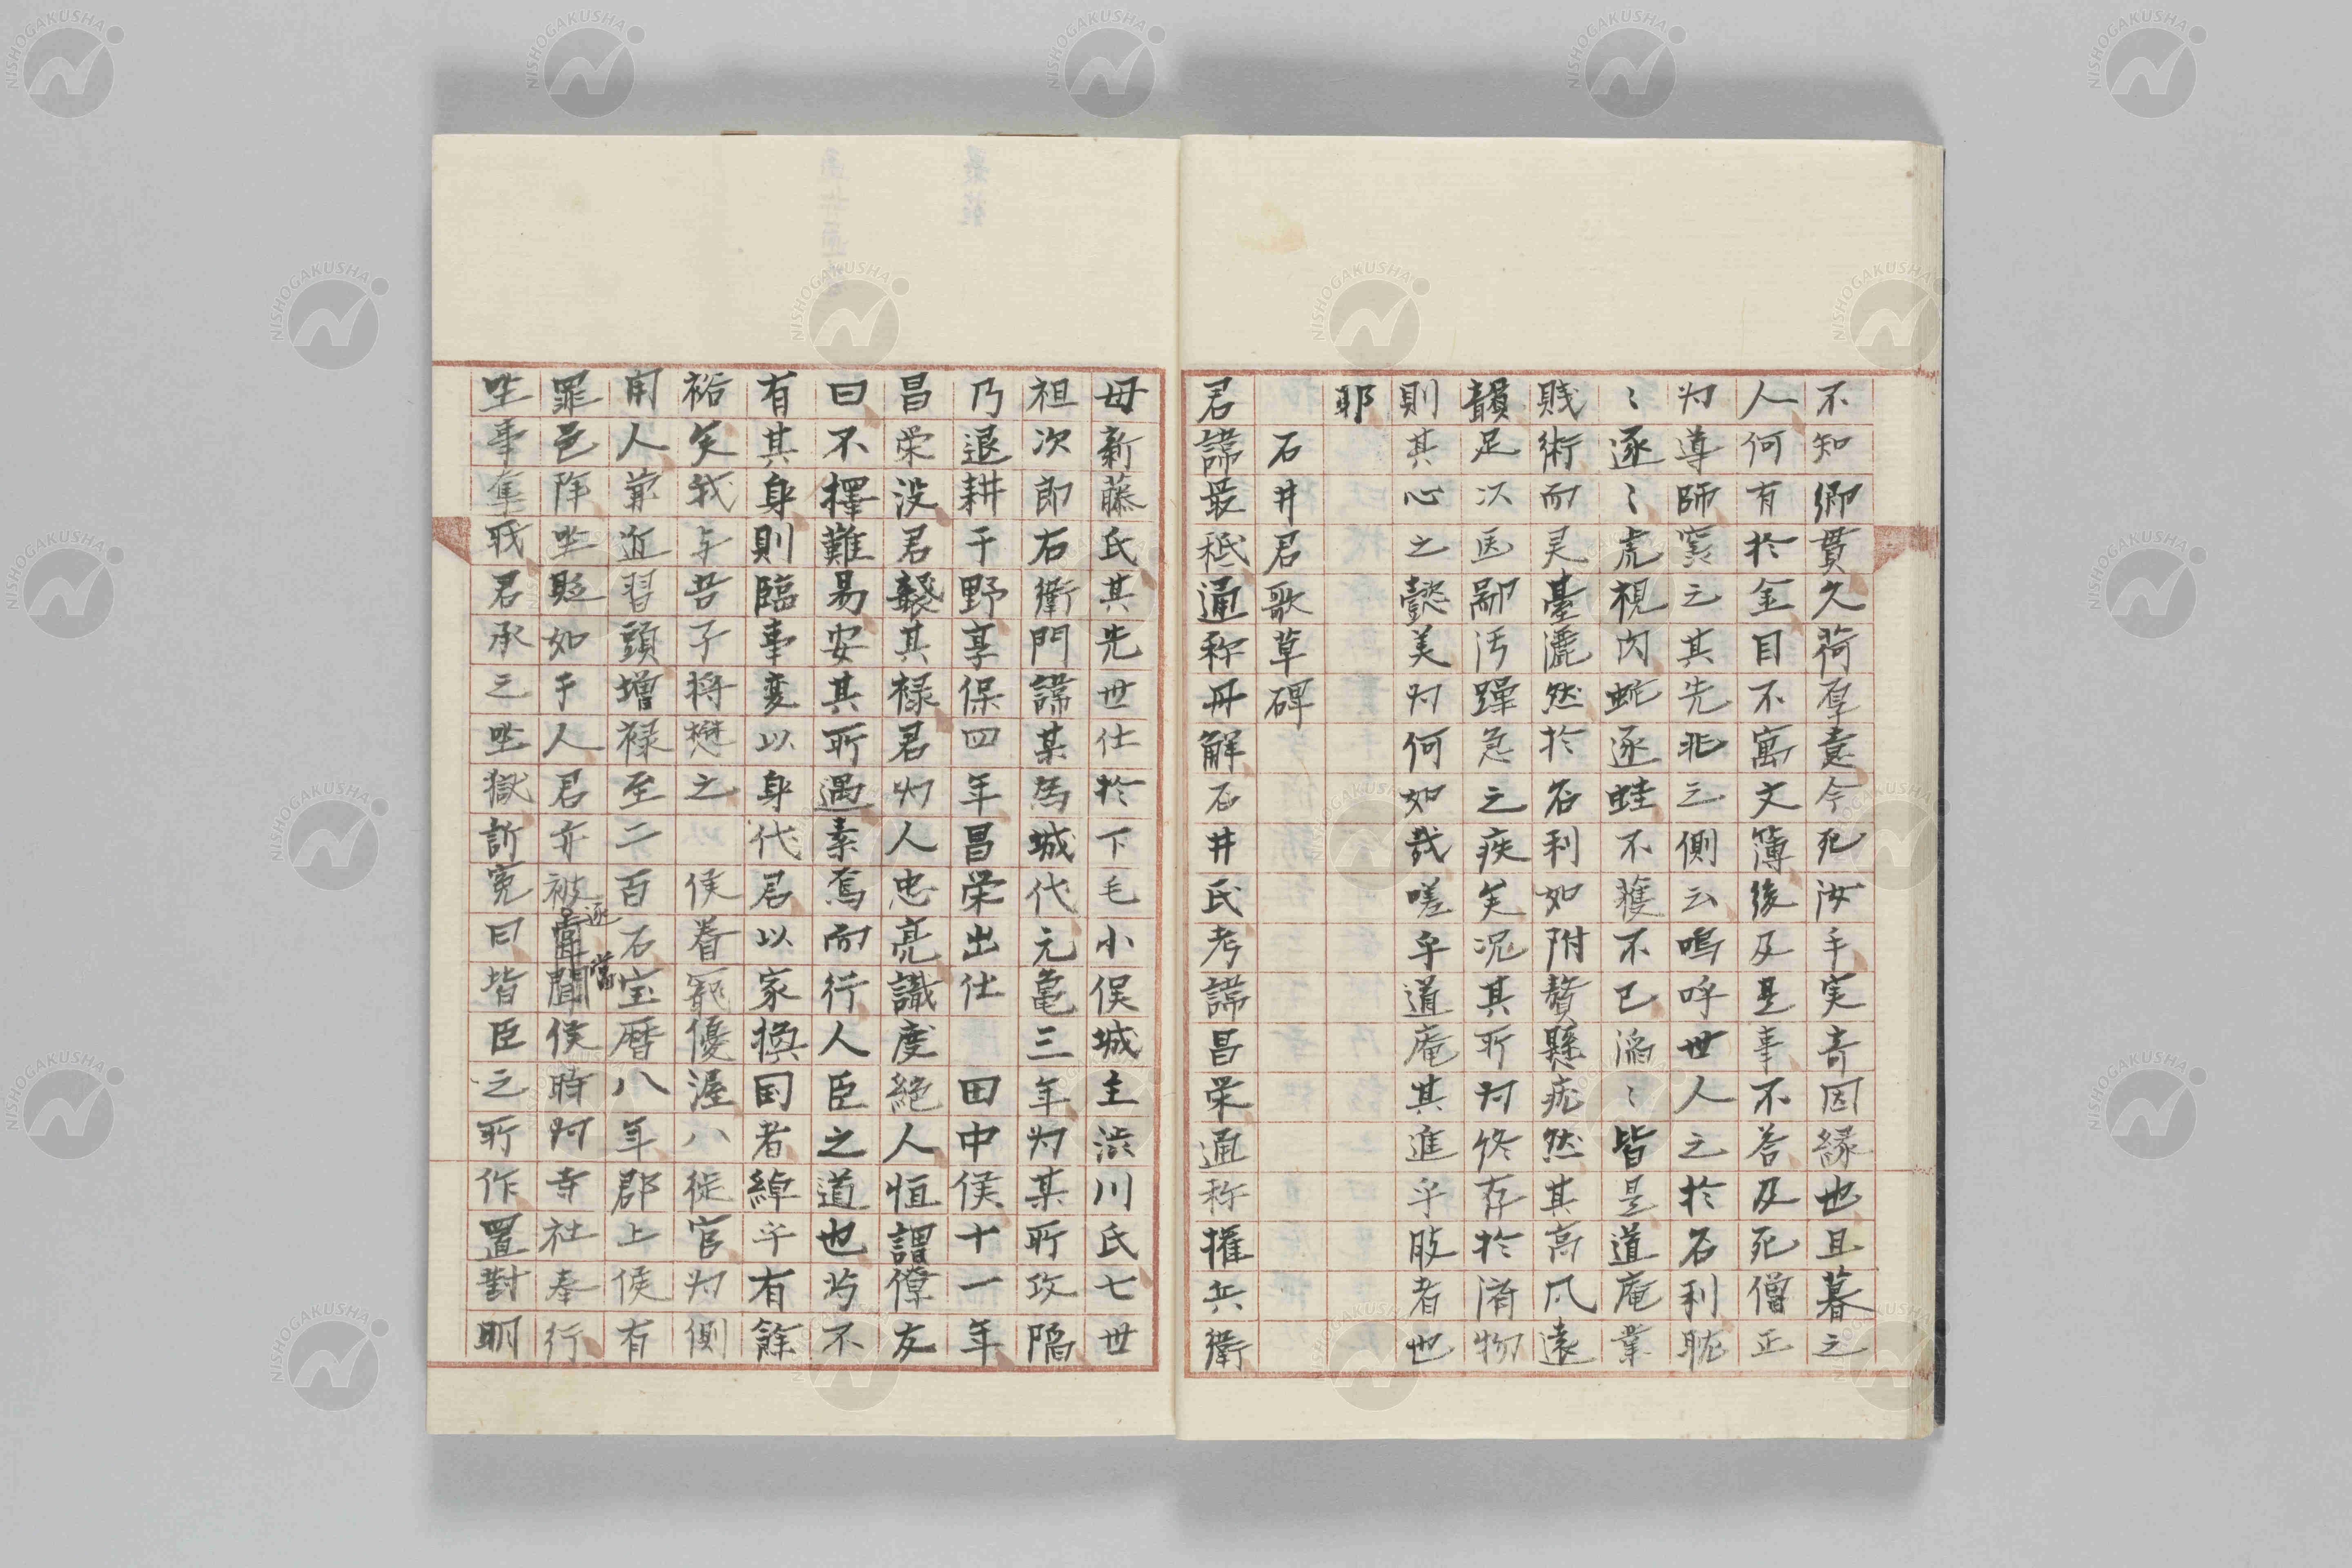 不知卿貫久荷厚意今死汝手実奇因縁也且暮之
人何有於金目不寓文簿後及是事不答及死僧正
为導師窆之其先兆之側云嗚呼世人之於名利眈
〻逐〻虎視内虵逐蛙不獲不已滔〻皆是道庵業
賎術而灵臺灑然於名利如附贅縣疣然其高风遠
韻足以医鄙汚躁急之疾矣况其所为終存於済物
則其心之懿美为何如哉嗟乎道庵其進乎肢者也
耶
石井君歌草碑
君諱最祗通称丹解石井氏考諱昌栄通称権兵衛
母新藤氏其先世仕於下毛小俣城主渋川氏七世
祖次郎右衛門諱某為城代元亀三年为某所攻陥
乃退耕于野享保四年昌栄出仕 田中侯十一年
昌栄没君襲其禄君为人忠亮識度絶人恒謂僚友
曰不擇難易安其所遇素焉而行人臣之道也为不
有其身則臨事変以身代君以家換国者綽乎有餘
裕矣我与吾子将懋之 侯眷寵優渥八徙官为側
用人兼近習頭増禄至二百石宝暦八年郡上侯有
罪邑除坐貶如干人君亦被逐當聞侯時为寺社奉行
坐事隼職君承之坐獄訴寃曰皆臣之所作置對明
NISHOGAKUSHA